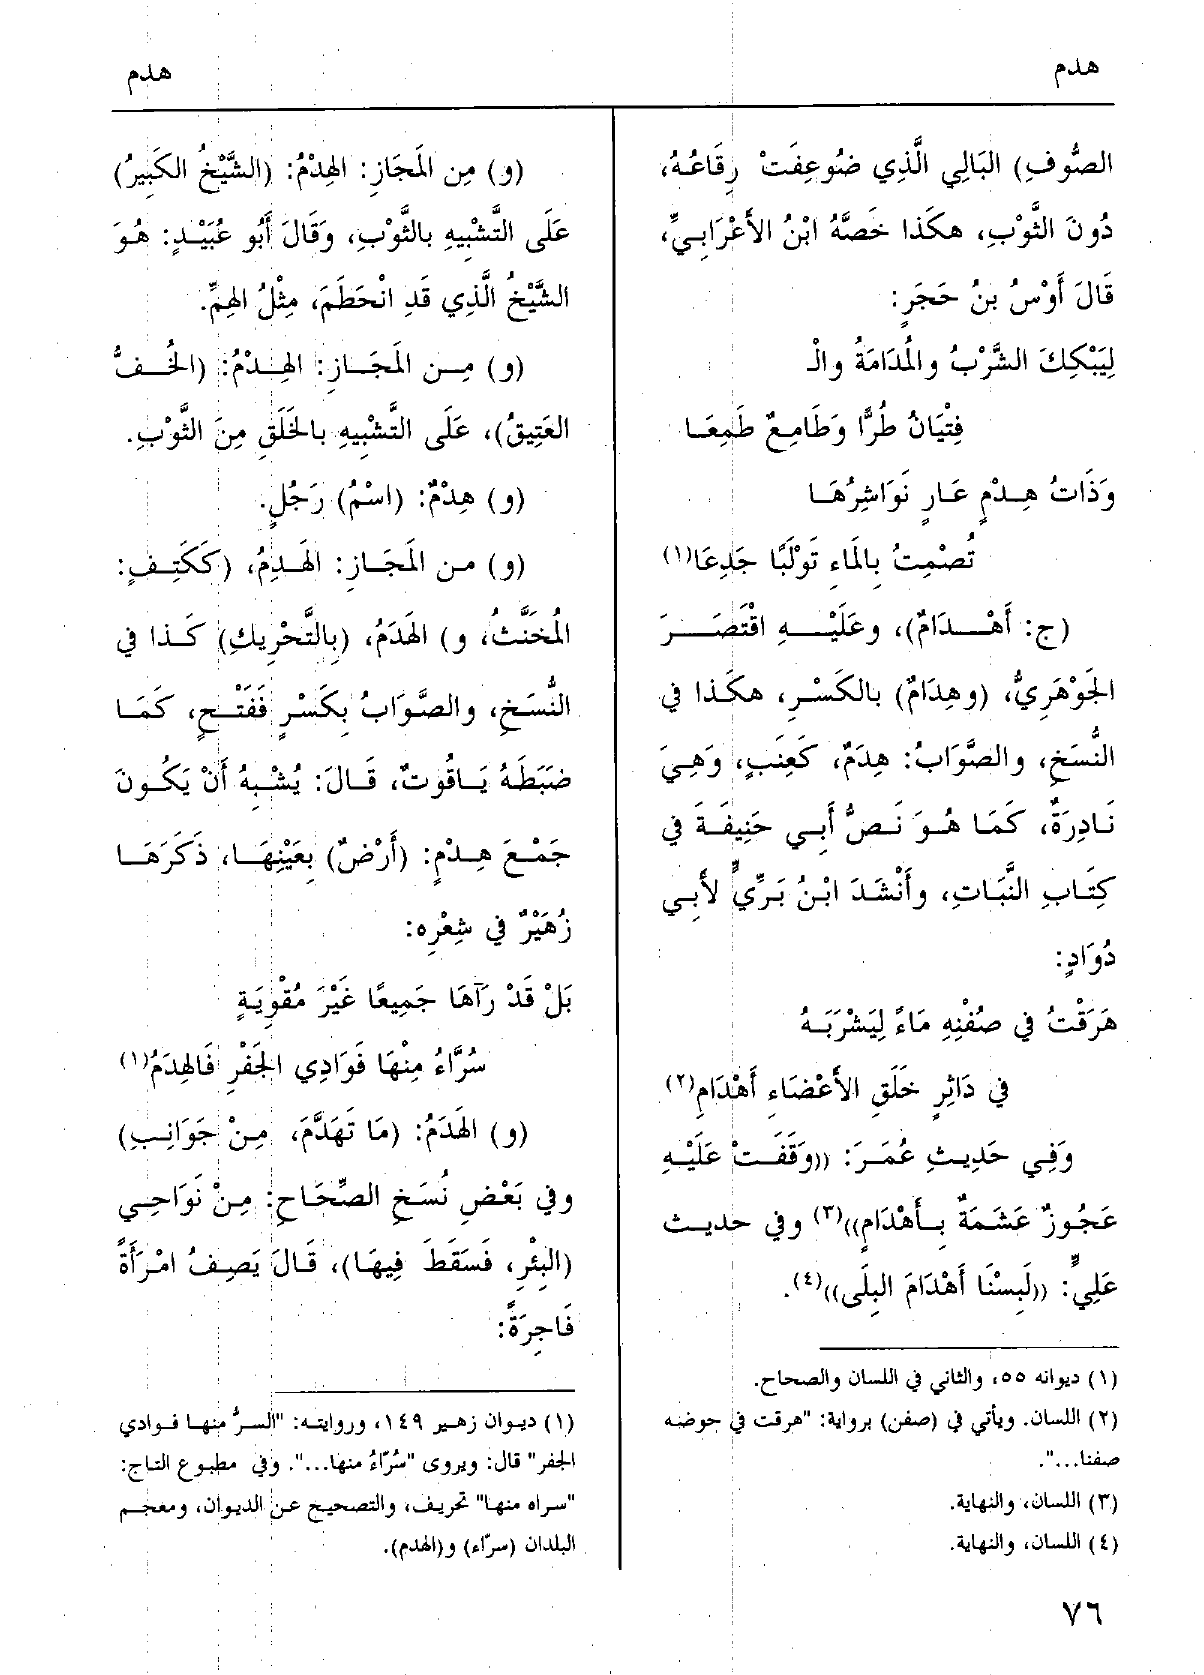 هدم
هدم
الصُّوفِ) البَالِي الَّذِي ضُوعِفَتْ رِقَاعُهُ،
دُونَ الثَّوْبِ، هكَذا خَصَّهُ ابْنُ الأَعْرَابِيِّ،
قَالَ أَوْسُ بنُ حَجَرٍ:
لِيَبْكِكَ الشَّرْبُ والْمُدَامَةُ والْـ
فِتْيَانُ طُرًّا وَطَامِعٌ طَمِعَا
وَذَاتُ هِدْمٍ عَارٍ نَوَاشِرُهَا
تُصْمِتُ بِالمَاءِ تَوْلَبًا جَدِعَا(١)
(ج: أَهْدَامٌ)، وعَلَيْهِ اقْتَصَرَ
الجَوْهَرِيُّ، (وهِدَامٌ) بالكَسْرِ، هكَذا في
النُّسَخِ، والصَّوَابُ: هِدَمٌ، كَعِنَبٍ، وَهِيَ
نَادِرَةٌ، كَمَا هُوَ نَصُّ أَبِي حَنِيفَةَ في
كِتَابِ النَّبَاتِ، وأَنْشَدَ ابْنُ بَرِّيٍّ لأَبِي
دُوَادٍ:
هَرَقْتُ في صُفْنِهِ مَاءً لِيَشْرَبَهُ
في دَاثِرٍ خَلَقِ الأَعْضَاءِ أَهْدَامِ(٢)
وَفِي حَدِيثِ عُمَرَ: ((وَقَفَتْ عَلَيْهِ
عَجُوزٌ عَشَمَةٌ بِأَهْدَامٍ))(٣) وفي حديث
عَلِيٍّ: ((لَبِسْنَا أَهْدَامَ البِلَى))(٤).
(١) ديوانه ٥٥، والثاني في اللسان والصحاح.
(٢) اللسان. ويأتي في (صفن) برواية: "هرقت في حوضه
صفنا...".
(٣) اللسان، والنهاية.
(٤) اللسان، والنهاية.
(و) مِن الْمَجَازِ: الهِدْمُ: (الشَّيْخُ الكَبِيرُ)
عَلَى التَّشْبِيهِ بالثَّوْبِ، وَقَالَ أَبُو عُبَيْدٍ: هُوَ
الشَّيْخُ الَّذِي قَدِ انْحَطَمَ، مِثْلُ الهِمِّ.
(و) مِـن الْمَجَـازِ: الهِـدْمُ: (الخُـفُّ
العَتِيقُ)، عَلَى التَّشْبِيهِ بالخَلَقِ مِنَ الثَّوْبِ.
(و) هِدْمٌ: (اسْمُ) رَجُلٍ.
(و) من الْمَجَازِ: الهَدِمُ، (كَكَتِفٍ:
الْمُخَنَّثُ، و) الهَدَمُ، (بِالتَّحْرِيكِ) كَذا في
النُّسَخِ، والصَّوَابُ بِكَسْرٍ فَفَتْحٍ، كَمَا
ضَبَطَهُ يَاقُوتٌ، قَالَ: يُشْبِهُ أَنْ يَكُونَ
جَمْعَ هِدْمٍ: (أَرْضٌ) بِعَيْنِهَا، ذَكَرَهَا
زُهَيْرٌ في شِعْرِه:
بَلْ قَدْ رَآهَا جَمِيعًا غَيْرَ مُقْوِيَةٍ
سُرَّاءُ مِنْهَا فَوَادِي الجَفْرِ فَالهِدَمُ(١)
(و) الهَدَمُ: (مَا تَهَدَّمَ، مِنْ جَوَانِبِ)
وفي بَعْضِ نُسَخِ الصِّحَاحِ: مِنْ نَوَاحِي
(البِئْرِ، فَسَقَطَ فِيهَا)، قَالَ يَصِفُ امْرَأَةً
فَاجِرَةً:
(١) ديوان زهير ١٤٩، وروايته: "السرُّ منها فوادي
الجفر" قال: ويروى "سُرّاءُ منها...". وفي مطبوع التاج:
"سراه منها" تحريف، والتصحيح عن الديوان، ومعجم
البلدان (سرّاء) و(الهدم).
٧٦